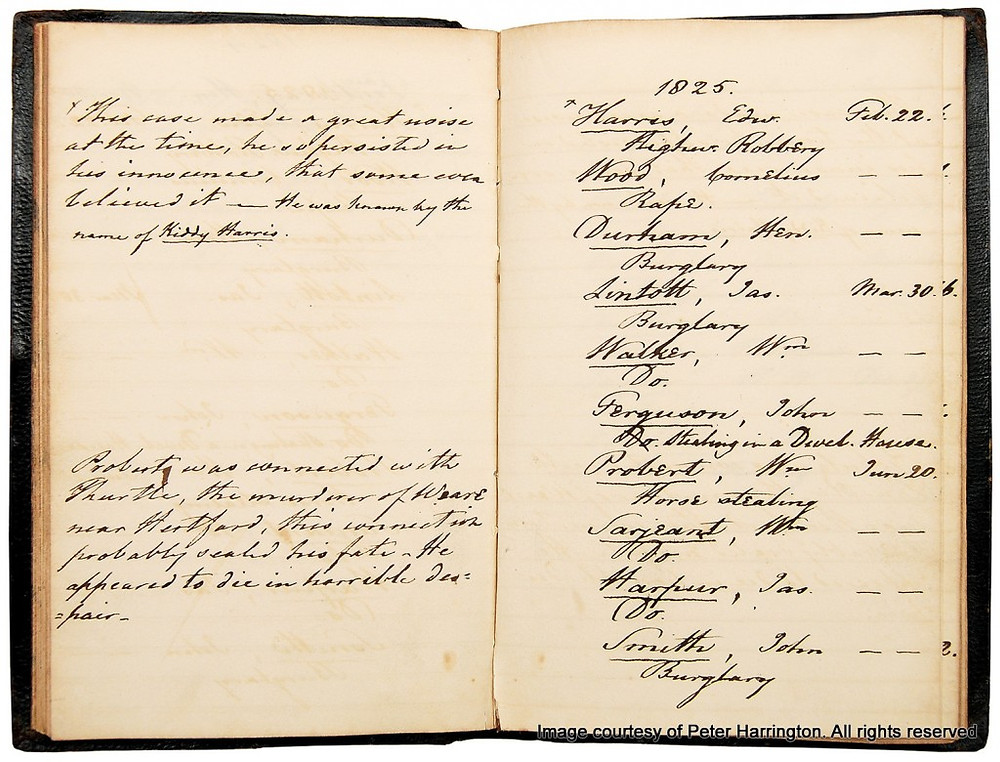 x This case made a great noise
at the time, he so persisted in
his innocence, that some even
believed it — He was known by the
name of Kiddy Harris.
Probert, was connected with
Thurtle, the murderer of Weare
near Hertford, this connection
probably sealed his fate - He
appeared to die in horrible des=
=pair -
1825.
x Harris, Edw. Feb. 22.
Highw. Robbery
Wood, Cornelius — —
Rape.
Durham, Hen. — —
Burglary
Lintott, Jas. Mar. 30. 6.
Burglary
Walker, Wm — —
Do.
Ferguson, John — —
Do. Stealing in a Dwel. House.
Probert, Wm Jun 20.
Horse stealing
Sarjeant, Wm — —
Do.
Harpur, Jas. — —
Do.
Smith, John — — 2.
Burglary
Image courtesy of Peter Harrington. All rights reserved